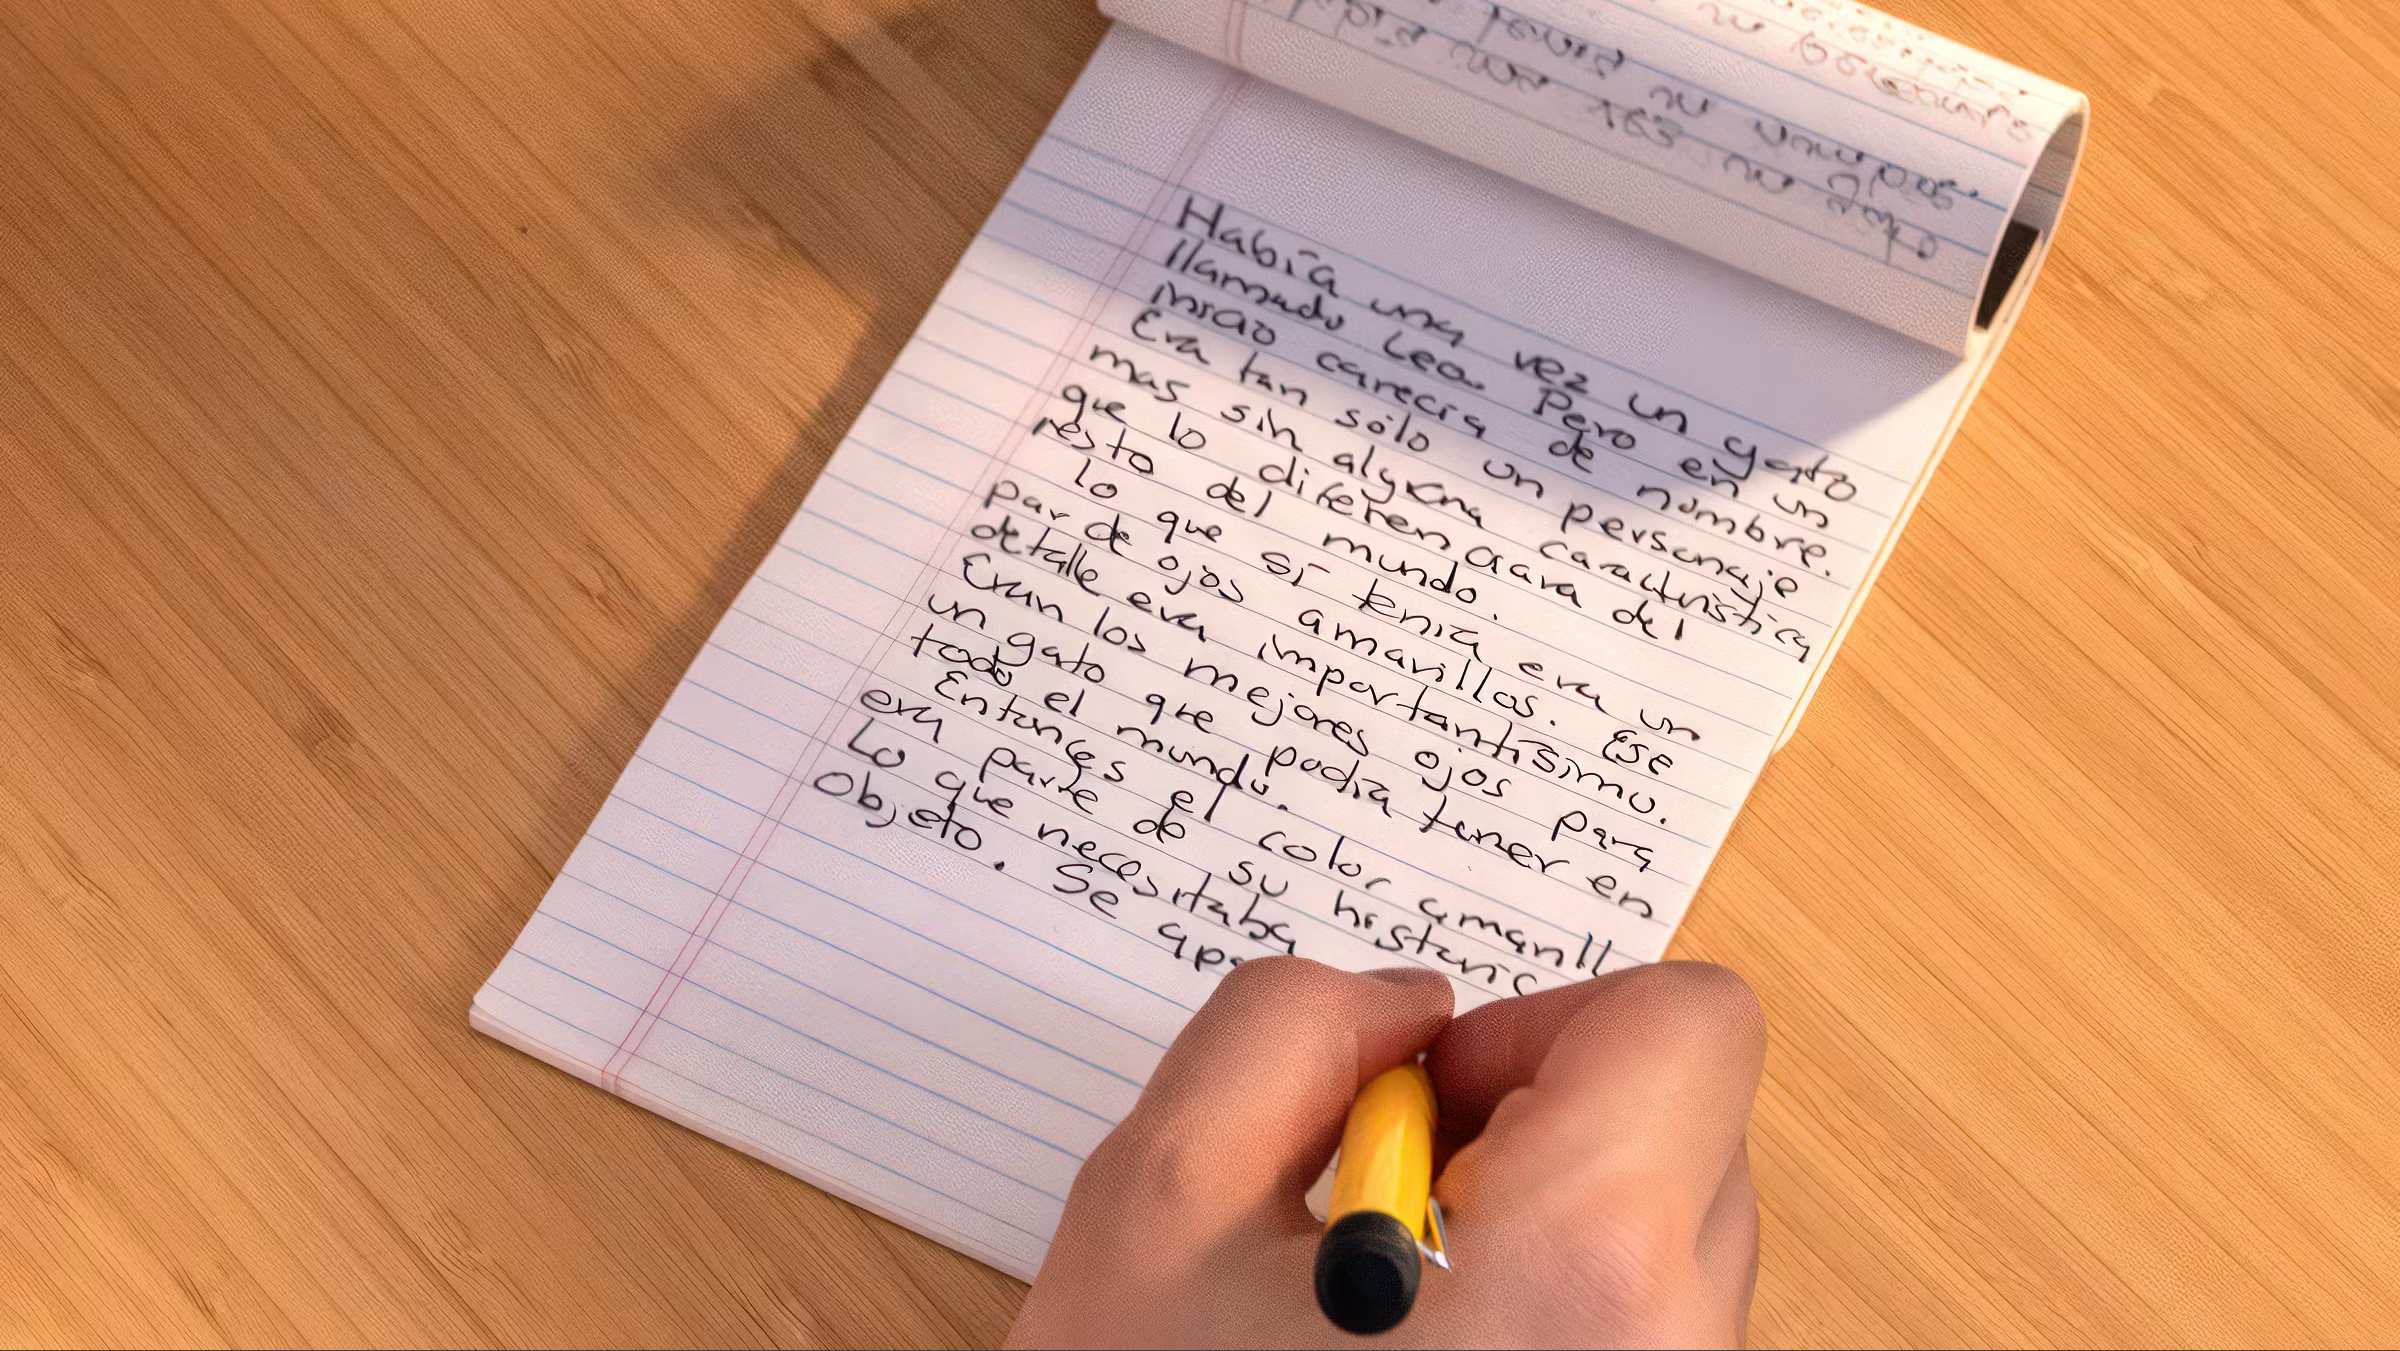 Había una vez un gato
llamado Leo. Pero en un
inicio carecía de nombre.
Era tan sólo un personaje
mas sin alguna característica
que lo diferenciara del
resto del mundo.
lo que sí tenía era un
par de ojos amarillos. Ese
detalle era importantísimo.
Eran los mejores ojos para
un gato que podía tener en
todo el mundo.
Entonces el color amarill
era parte de su historia
Lo que necesitaba
Objeto. Se